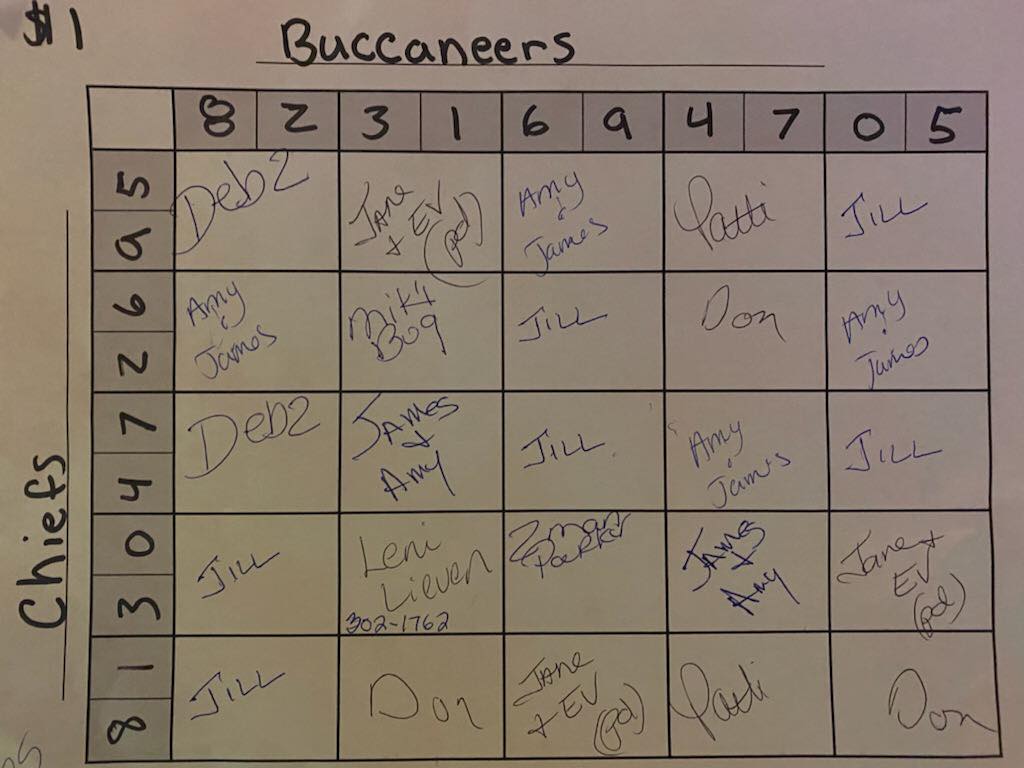 $1
Buccaneers
8 2 3 1 6 9 4 7 0 5
Chiefs
5
9
Deb2
Jane
+ EV
(pd)
Amy
&
James
Patti
JILL
6
2
Amy
&
James
Miki
Bog
JILL
Don
Amy
&
James
7
4
Deb2
JAMES
+
Amy
JILL
Amy
&
James
JILL
0
3
JILL
Leni
Lieven
302-1762
Zman
Parker
JAMES
+
Amy
Jane +
EV
(pd)
1
8
JILL
Don
JANE
+ EV
(pd)
Patti
Don